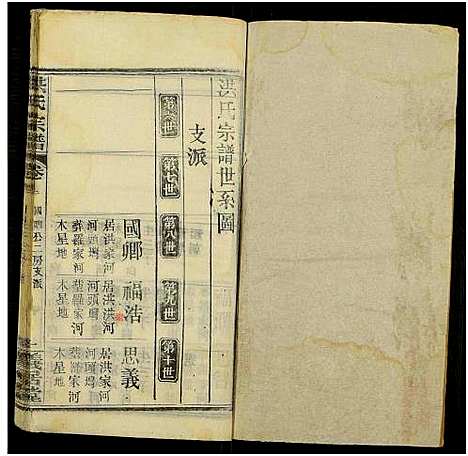 洪氏宗譜世系圖
支派
第六世
第七世
第八世
第九世
第十世
國卿
居洪家河
河頭塆
葬羅家河
木星地
福浩
居洪洪河
河頭塆
葬羅家河
木星地
思義
居洪家河
河頭塆
葬羅家河
木星地
洪氏宗譜
卷
國卿公二房支派